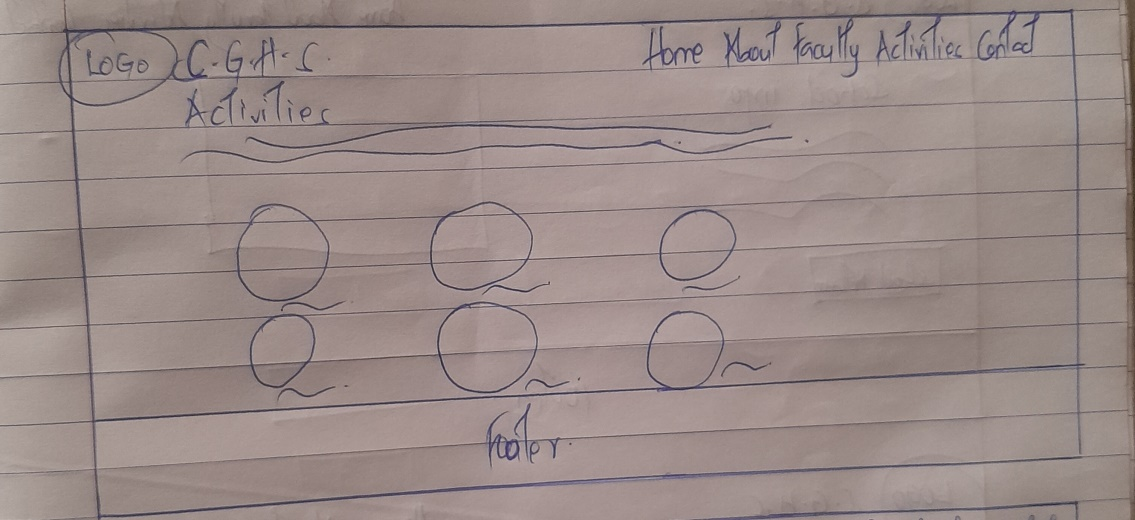 LOGO C.G.H.S. Home About Faculty Activities Contact
Activities
Footer.